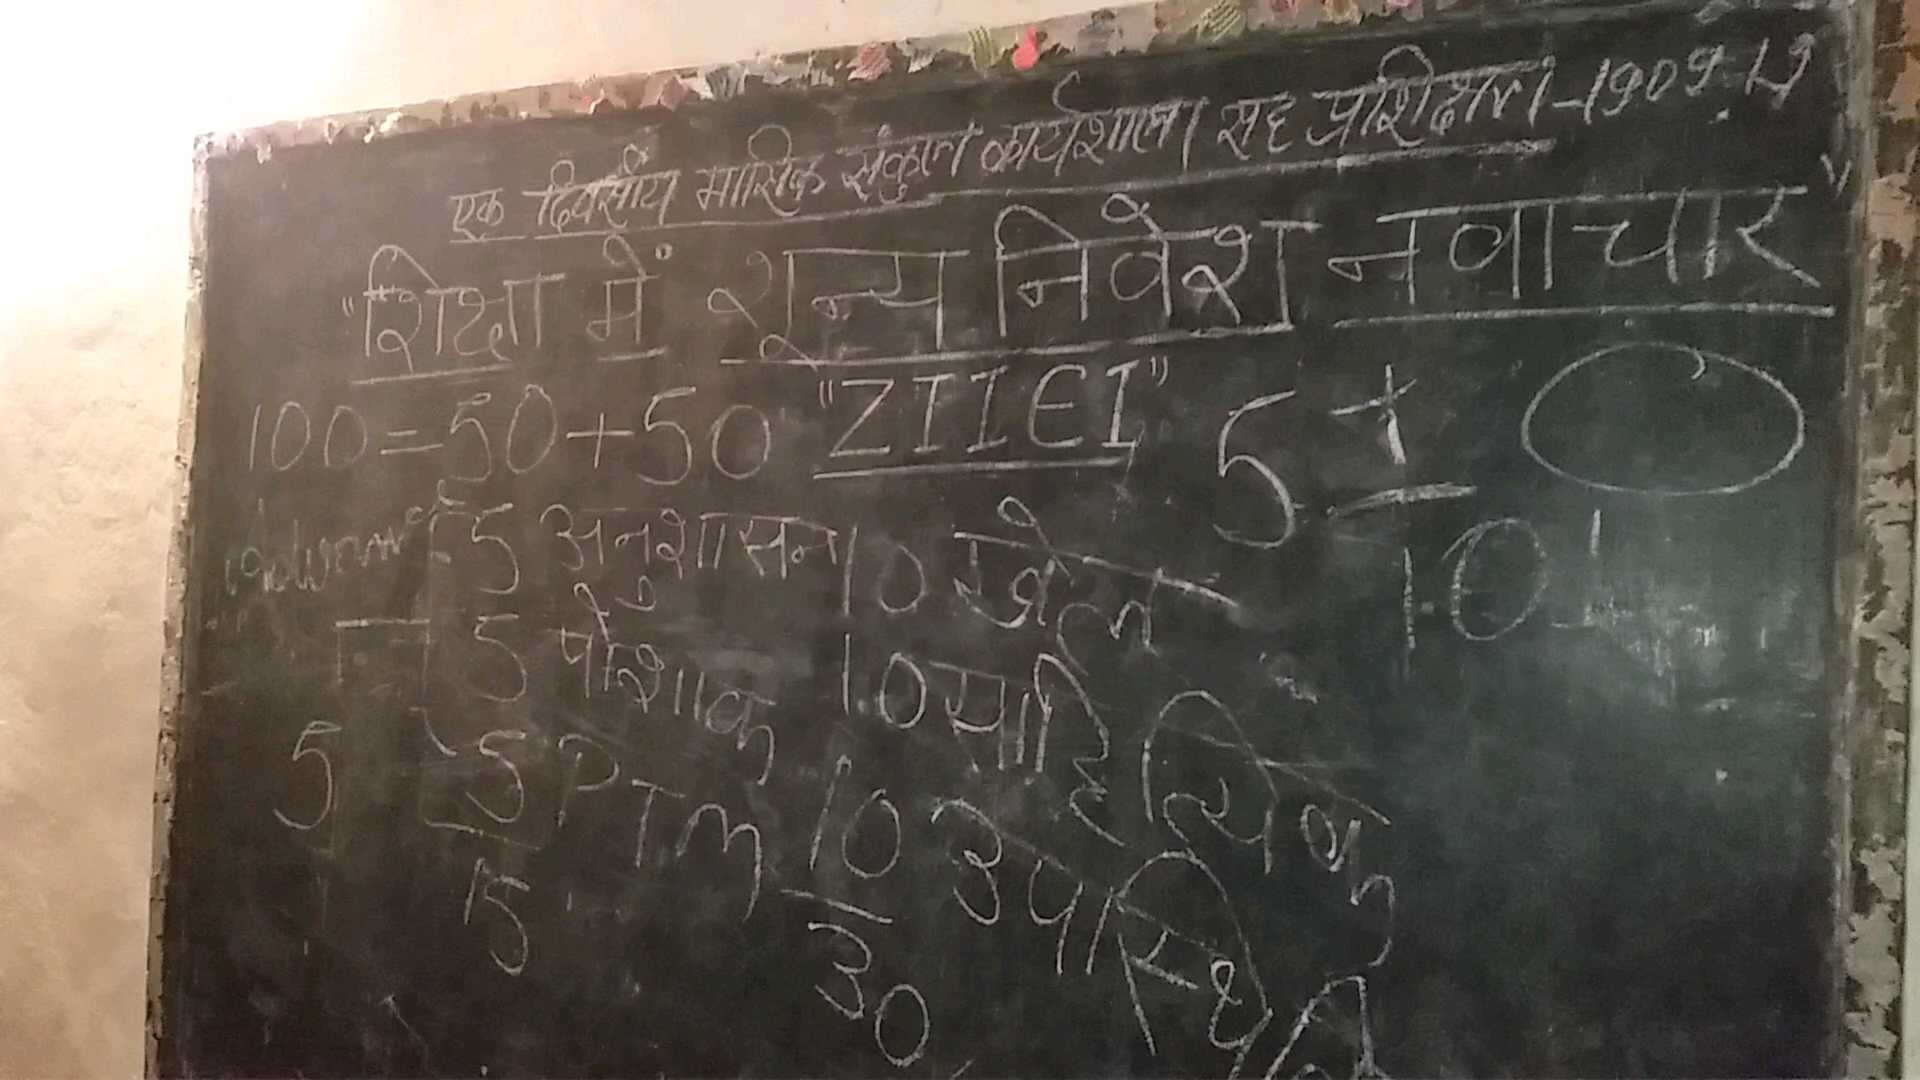 एक दिवसीय मासिक संकुल कार्यशाला सह प्रशिक्षण-19.09.19
"शिक्षा में शून्य निवेश नवाचार"
"ZIIEI"
100=50+50
5 +
10
5 अनुशासन 10 खेल
5 पोशाक 10 साहित्यिक
5
5 PTM 10 उपस्थिति
5
30